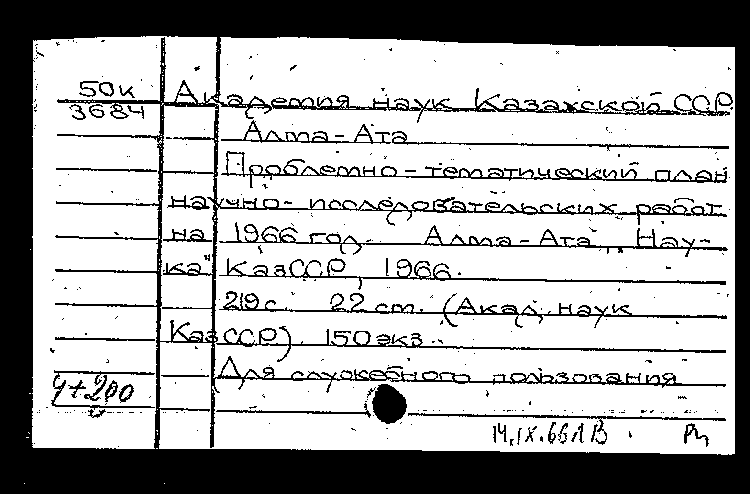 50к
3684
Академия наук Казахской ССР.
Алма-Ата
Проблемно-тематический план
научно-исследовательских работ
на 1966 год. Алма-Ата, "Нау-
ка" КазССР, 1966.
219 с. 22 см. (Акад. наук
КазССР). 150 экз.
Для служебного пользования
14.IX.66